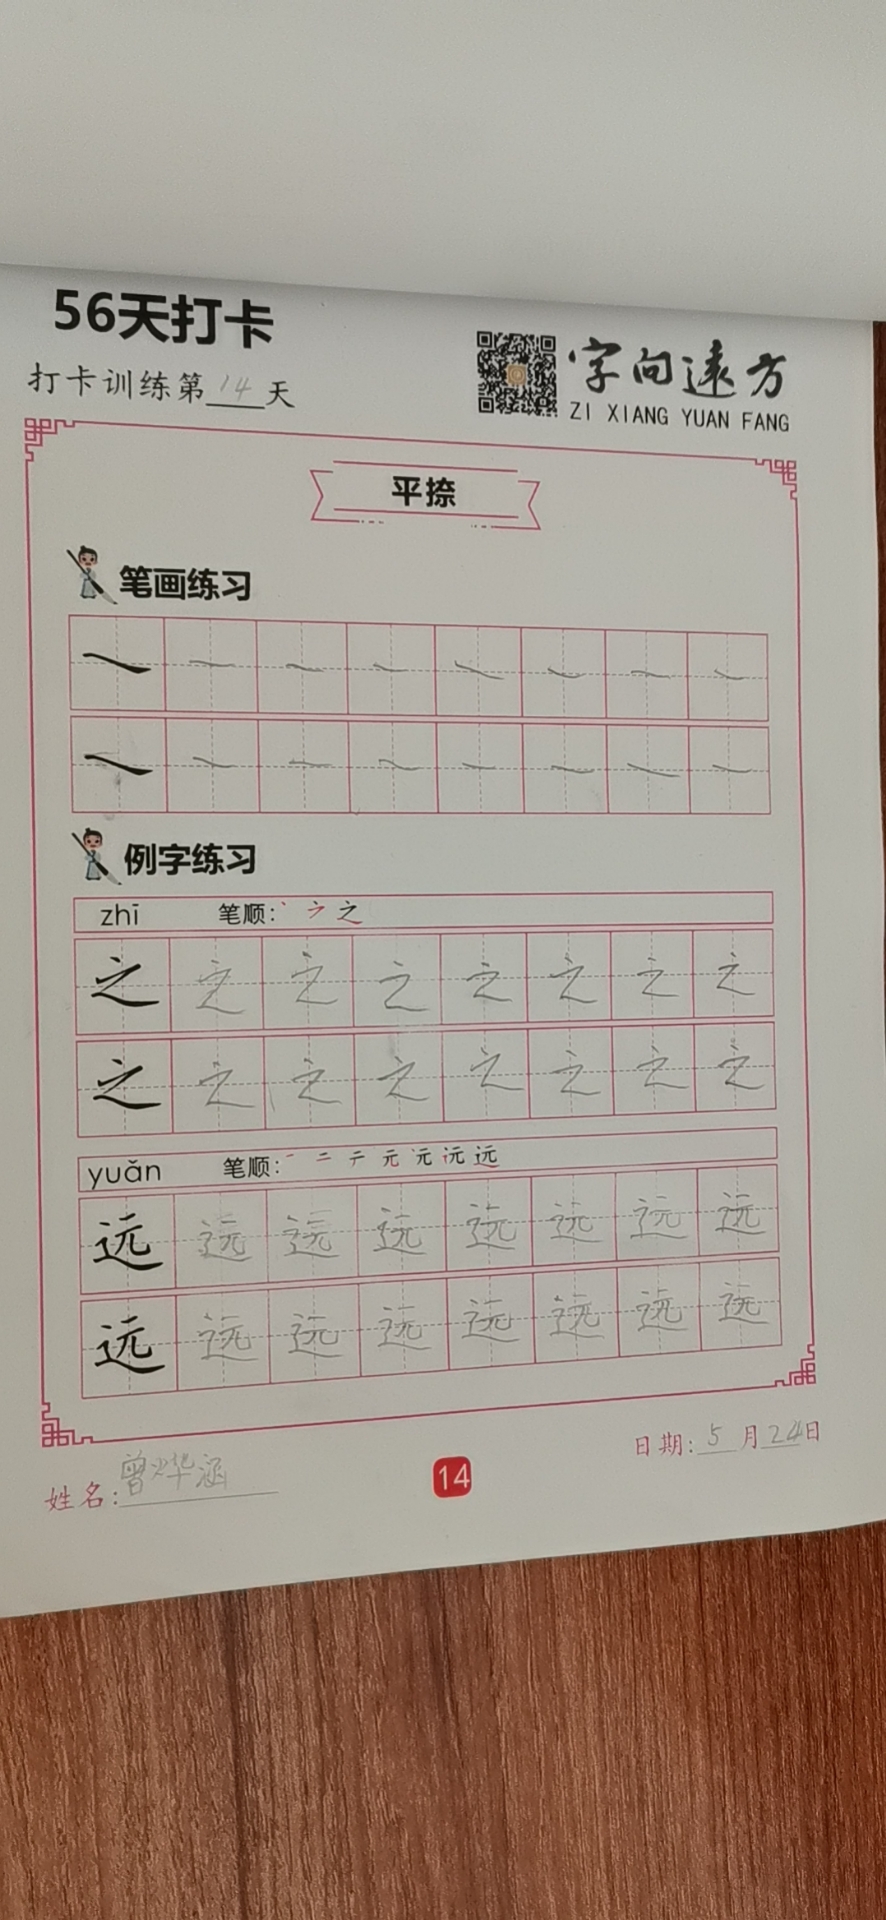 56天打卡
打卡训练第14天
字向远方
ZI XIANG YUAN FANG
平捺
笔画练习
㇏ ㇏ ㇏ ㇏ ㇏ ㇏ ㇏ ㇏
㇏ ㇏ ㇏ ㇏ ㇏ ㇏ ㇏ ㇏
例字练习
zhī 笔顺: 丶 之
之 之 之 之 之 之 之 之
之 之 之 之 之 之 之 之
yuǎn 笔顺: 一 二 テ 元 远
远 远 远 远 远 远 远 远
远 远 远 远 远 远 远 远
姓名:曾烨涵
14
日期:5月24日